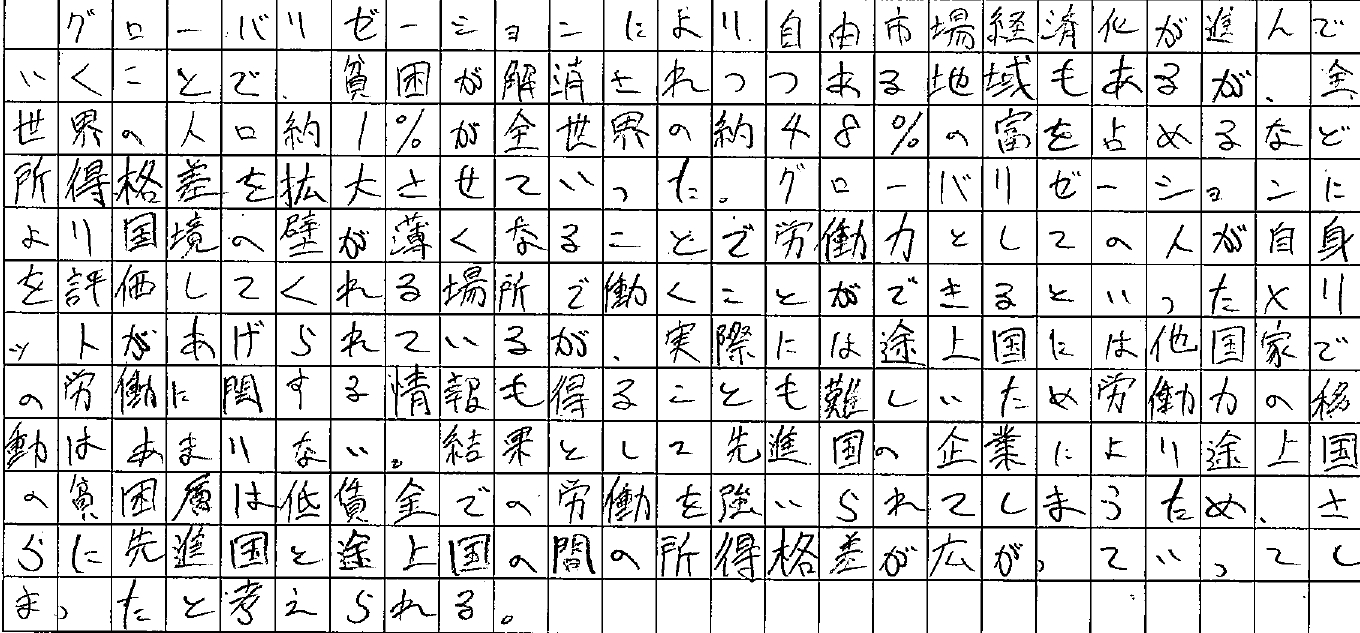 グローバリゼーションにより自由市場経済化が進んで
いくことで、貧困が解消されつつある地域もあるが、全
世界の人口約1%が全世界の約48%の富を占めるなど
所得格差を拡大させていった。グローバリゼーションに
より国境の壁が薄くなることで労働力としての人が自身
を評価してくれる場所で働くことができるといったメリ
ットがあげられているが、実際には途上国には他国家で
の労働に関する情報も得ることも難しいため労働力の移
動はあまりない。結果として先進国の企業により途上国
の貧困層は低賃金での労働を強いられてしまうため、さ
らに先進国と途上国の間の所得格差が広がっていってし
まったと考えられる。